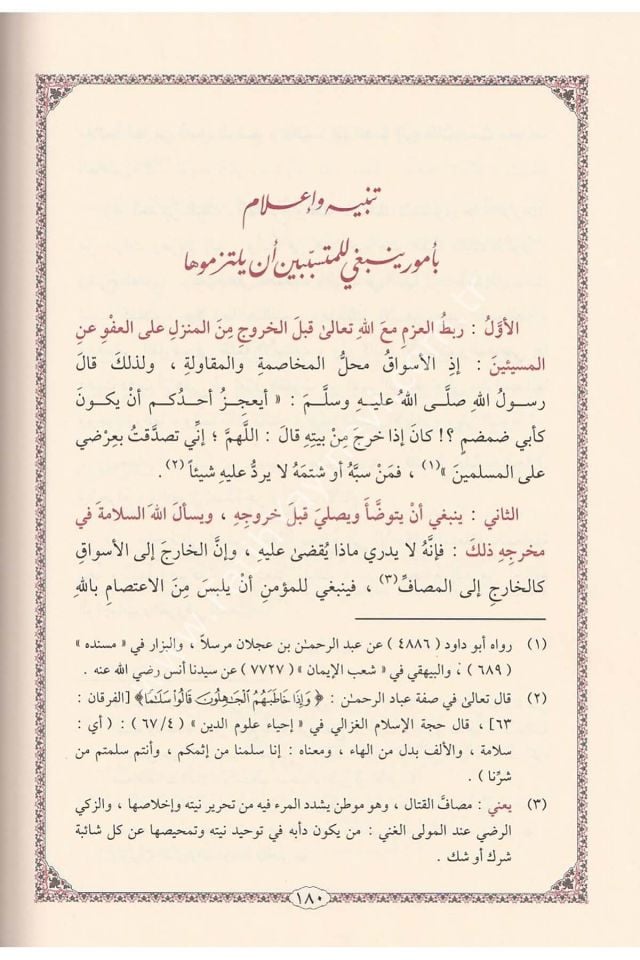 تنبيه وإعلام
بأمور ينبغي للمتسبّبين أن يلتزموها
الأوَّلُ : ربطُ العزمِ معَ اللهِ تعالىٰ قبلَ الخروجِ مِنَ المنزلِ على العفْوِ عنِ
المسيئينَ : إذِ الأسواقُ محلُّ المخاصمةِ والمقاولةِ ، ولذلكَ قالَ
رسولُ اللهِ صلَّى اللهُ عليهِ وسلَّمَ : « أيعجزُ أحدُكم أنْ يكونَ
كأبي ضمضمٍ ؟! كانَ إذا خرجَ مِنْ بيتِهِ قالَ : اللهمَّ ؛ إنِّي تصدَّقتُ بعِرْضي
على المسلمينَ »(١) ، فمَنْ سبَّهُ أو شتمَهُ لا يردُّ عليهِ شيئاً(٢).
الثاني : ينبغي أنْ يتوضَّأَ ويصليَ قبلَ خروجِهِ ، ويسألَ اللهَ السلامةَ في
مخرجِهِ ذلكَ : فإنَّهُ لا يدري ماذا يُقضىٰ عليهِ ، وإنَّ الخارجَ إلى الأسواقِ
كالخارجِ إلى المصافِّ(٣) ، فينبغي للمؤمنِ أنْ يلبسَ مِنَ الاعتصامِ باللهِ
(١) رواه أبو داود ( ٤٨٨٦ ) عن عبد الرحمـٰن بن عجلان مرسلاً ، والبزار في « مسنده »
( ٦٨٩ ) ، والبيهقي في « شعب الإيمان » ( ٧٧٢٧ ) عن سيدنا أنس رضي الله عنه .
(٢) قال تعالى في صفة عباد الرحمـٰن : ﴿ وَإِذَا خَاطَبَهُمُ ٱلْجَـٰهِلُونَ قَالُوا۟ سَلَـٰمًا﴾ [الفرقان :
٦٣] ، قال حجة الإسلام الغزالي في « إحياء علوم الدين » ( ٤/ ٦٧ ) : ( أي :
سلامة ، والألف بدل من الهاء ، ومعناه : إنا سلمنا من إثمكم ، وأنتم سلمتم من
شرِّنا ) .
(٣) يعني : مصافَّ القتال ، وهو موطن يشدد المرء فيه من تحرير نيته وإخلاصها ، والزكي
الرضي عند المولى الغني : من يكون دأبه في توحيد نيته وتمحيصها عن كل شائبة
شرك أو شك .
١٨٠